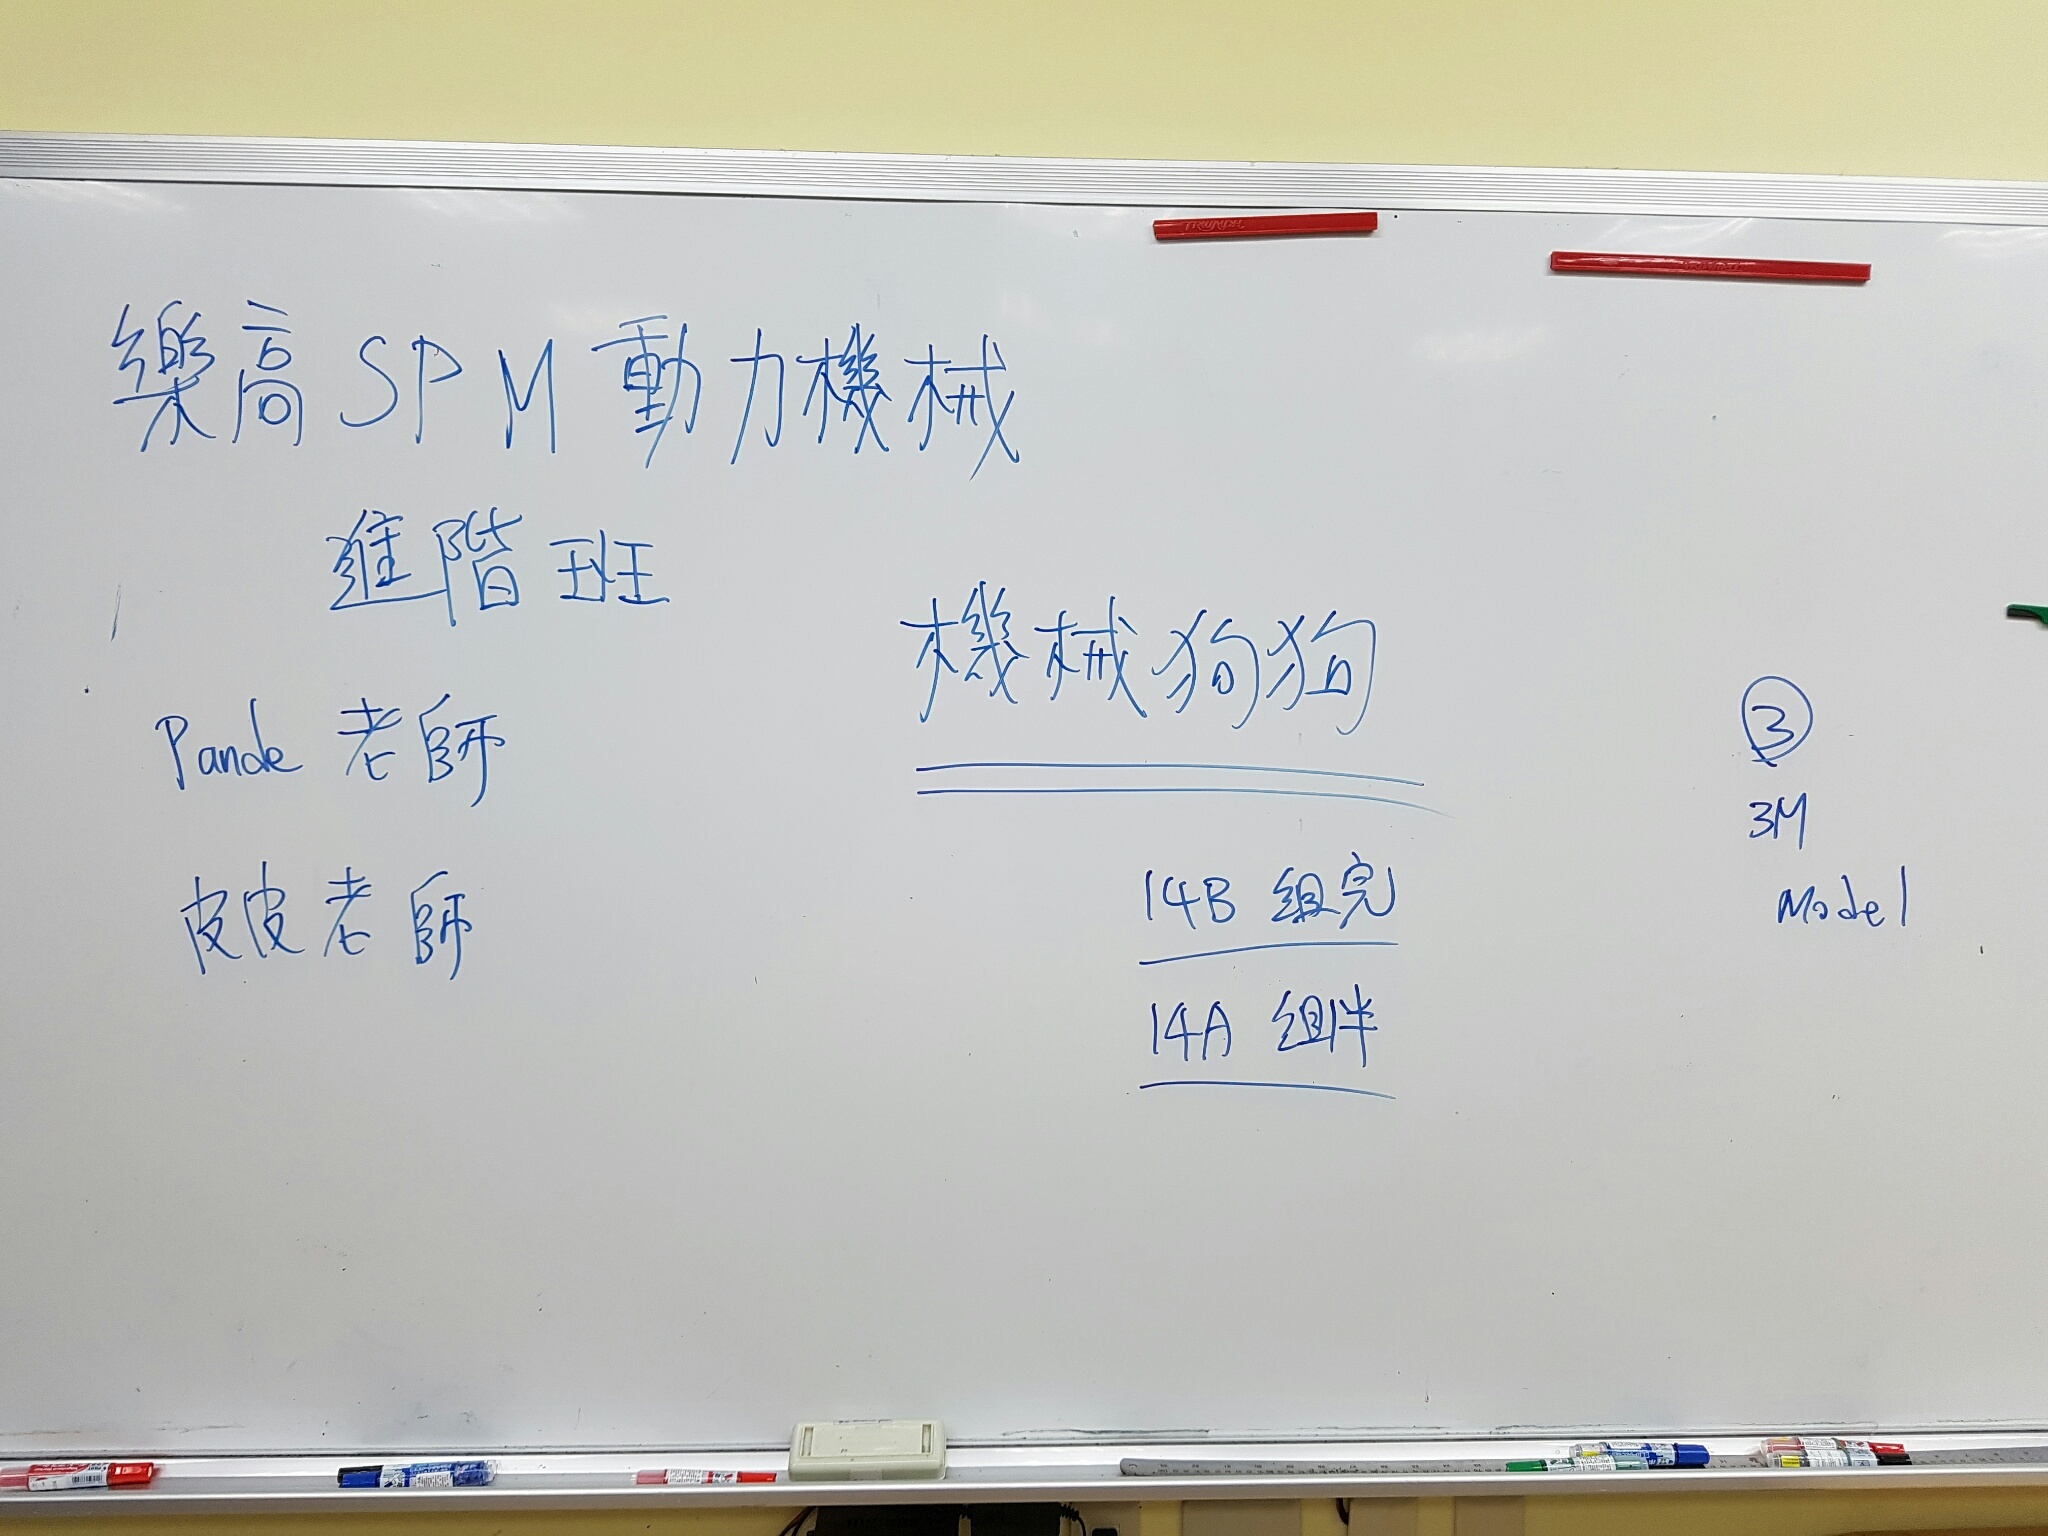 樂高SPM動力機械
進階班
Pande 老師
皮皮老師
機械狗狗
14B 組完
14A 組半
③
3M
Model